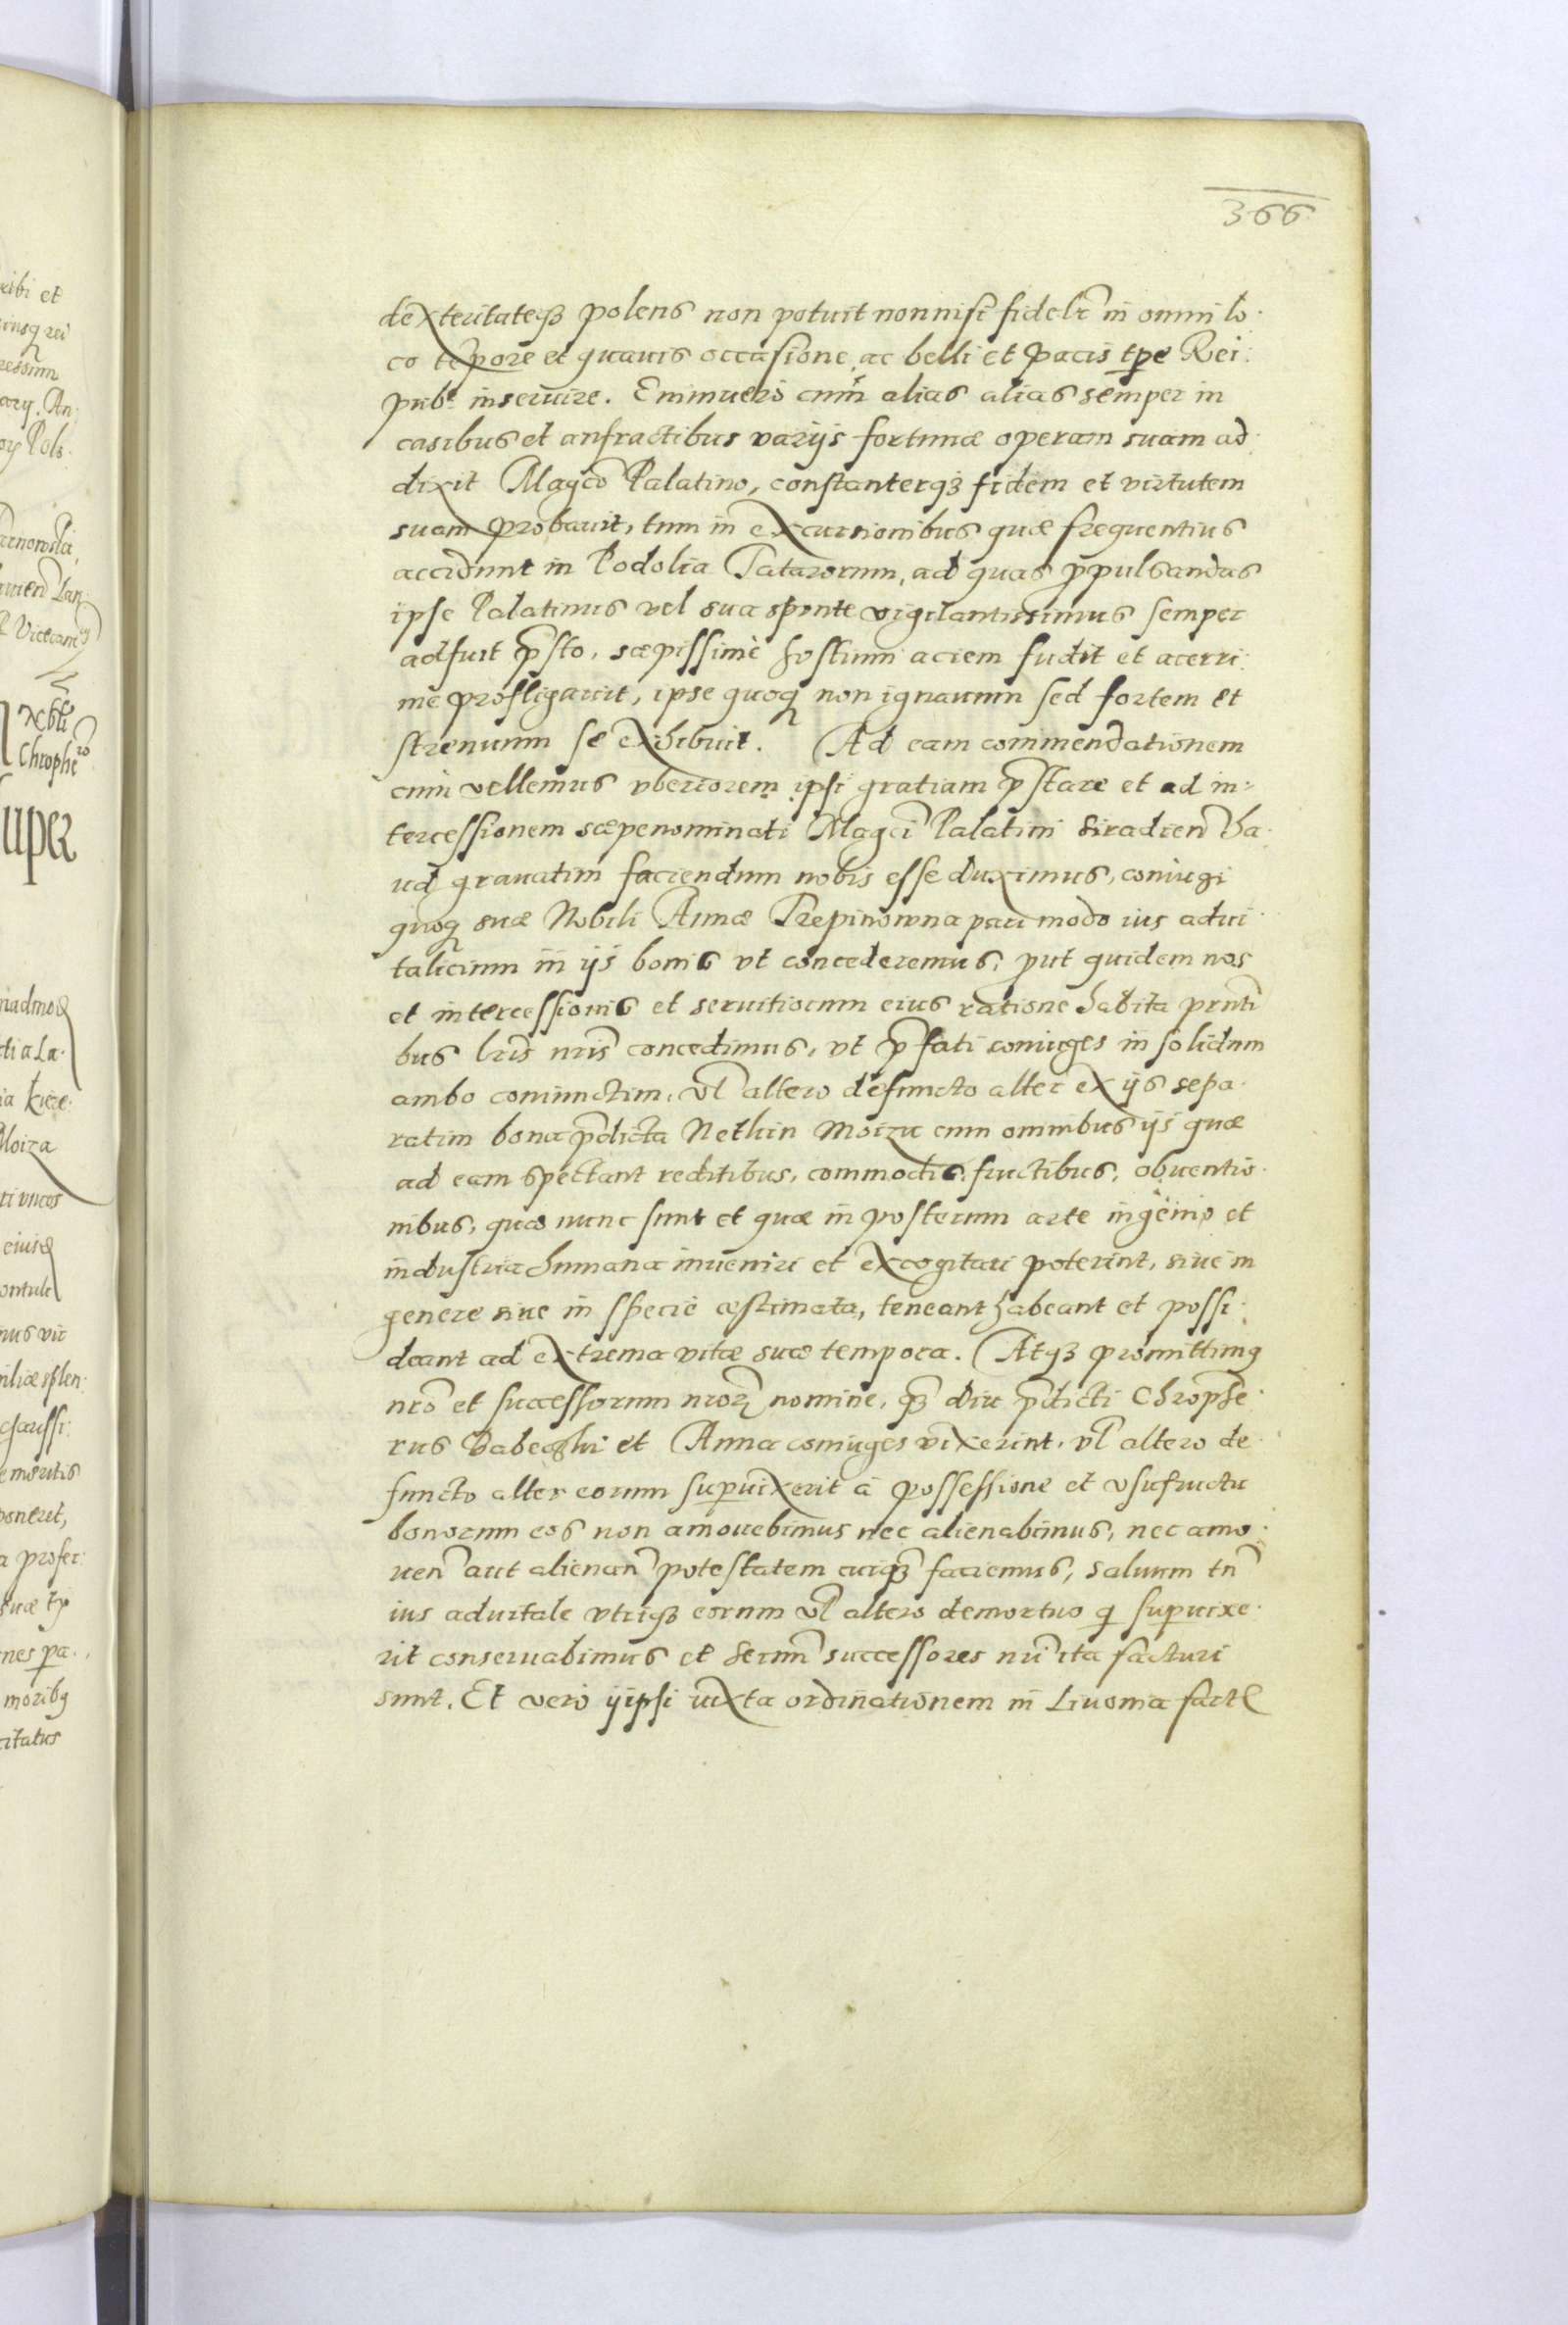 366
dexteritateq₃ polens non potuit nonnisi fideli in omni lo-
co tēpore et quauis occasione, ac belli et pacis tpe Rei:
pub: inseruire. Enimuero cum alias alias semper in
casibus et anfractibus varijs fortunæ operam suam ad:
dixit Magco Palatino, constanterq₃ fidem et virtutem
suam probauit, tum in excursionibus quæ frequentius
accidunt in Podolia Tatarorum, ad quas ppulsandas
ipse Palatinus vel sua sponte vigilantissimus semper
adfuit psto, sæpissimè hostium aciem fudit et acerri:
me profligauit, ipse quoq non ignauum sed fortem et
strenuum se exhibuit. Ad eam commendationem
cum vellemus vberiorem ipsi gratiam pstare et ad in:
tercessionem sæpenominati Magci Palatini Siradien ha-
ud grauatim faciendum nobis esse duximus, coniugi
quoq suæ Nobili Annæ Trepinowna pari modo ius adui-
talicium in ijs bonis vt concederemus, put quidem nos
et intercessionis et seruitiorum eius ratione habita prnti
bus lris nris concedimus, vt pfati coniuges in solidum
ambo coniunctim, vl altero defuncto alter ex ijs sepa-
ratim bona pdicta Nethin Moiza cum omnibus ijs quæ
ad eam spectant reditibus, commodis, fructibus, obuentio-
nibus, quæ nunc sunt et quæ in posterum arte ingenio et
industria humana inueniri et excogitari poterint, siue in
genere siue in specie æstimata, teneant habeant et possi:
deant ad extrema vitæ suæ tempora. Atq₃ promittimg
nro et successorum nror nomine, q₃ diu pdicti Chrophe-
rus Dabeghi et Anna coniuges vixerint, vl altero de-
functo alter eorum supuixerit à possessione et vsufructu
bonorum eos non amouebimus nec alienabimus, nec amo-
uen aut alienan potestatem cuiq₃ faciemus, saluum tn
ius aduitale vtriq₃ eorum vl altero demortuo q supuixe-
rit conseruabimus et Sermi successores nri ita facturi
sunt. Et vero ijipsi iuxta ordinationem in Liuonia fact